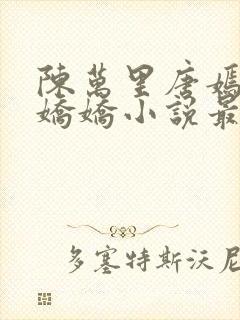 陳萬里唐嫣
嬌嬌小說最
多塞特斯沃尼